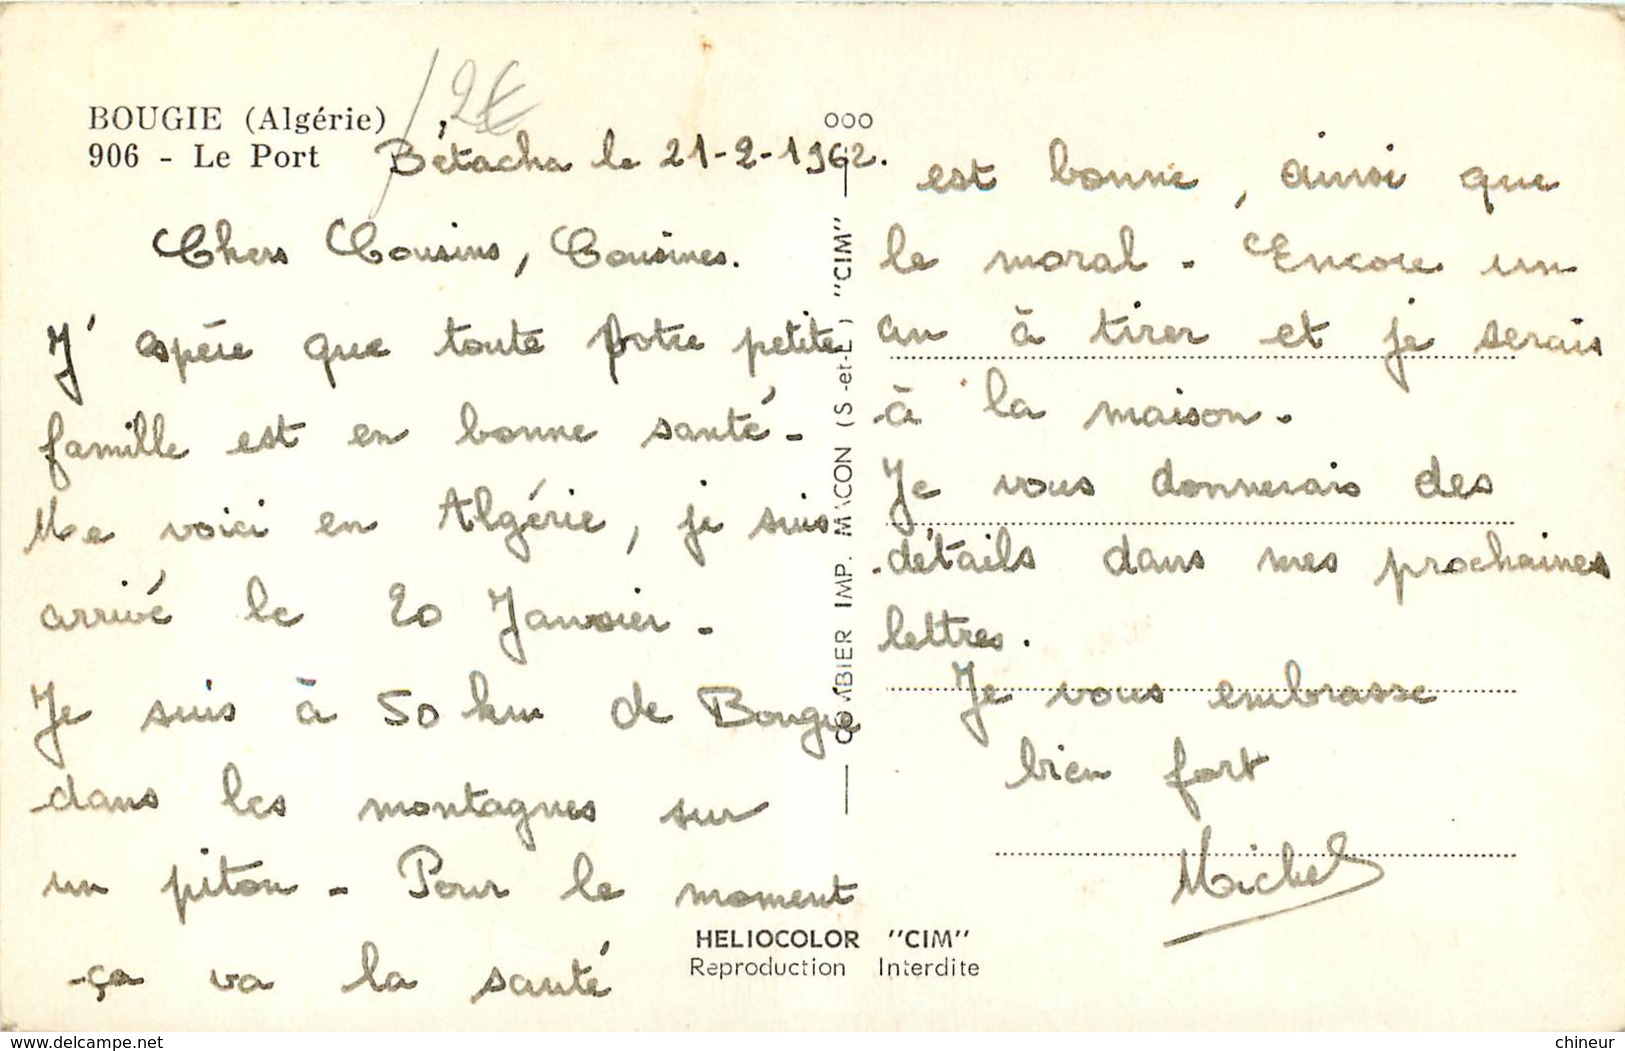 BOUGIE (Algérie)
906 - Le Port
2€
Bétacha le 21-2-1962.
Chers Cousins, Cousines.
J'espère que toute votre petite
famille est en bonne santé -
Me voici en Algérie, je suis
arrivé le 20 Janvier -
Je suis à 50 km de Bougie
dans les montagnes sur
un piton - Pour le moment
ça va la santé
000
COMBIER IMP. MACON (S-et-L) "CIM"
est bonne, ainsi que
le moral - Encore un
an à tirer et je serais
à la maison -
Je vous donnerais des
détails dans mes prochaines
lettres.
Je vous embrasse
bien fort
Michel
HELIOCOLOR "CIM"
Reproduction Interdite
delcampe.net
chineur